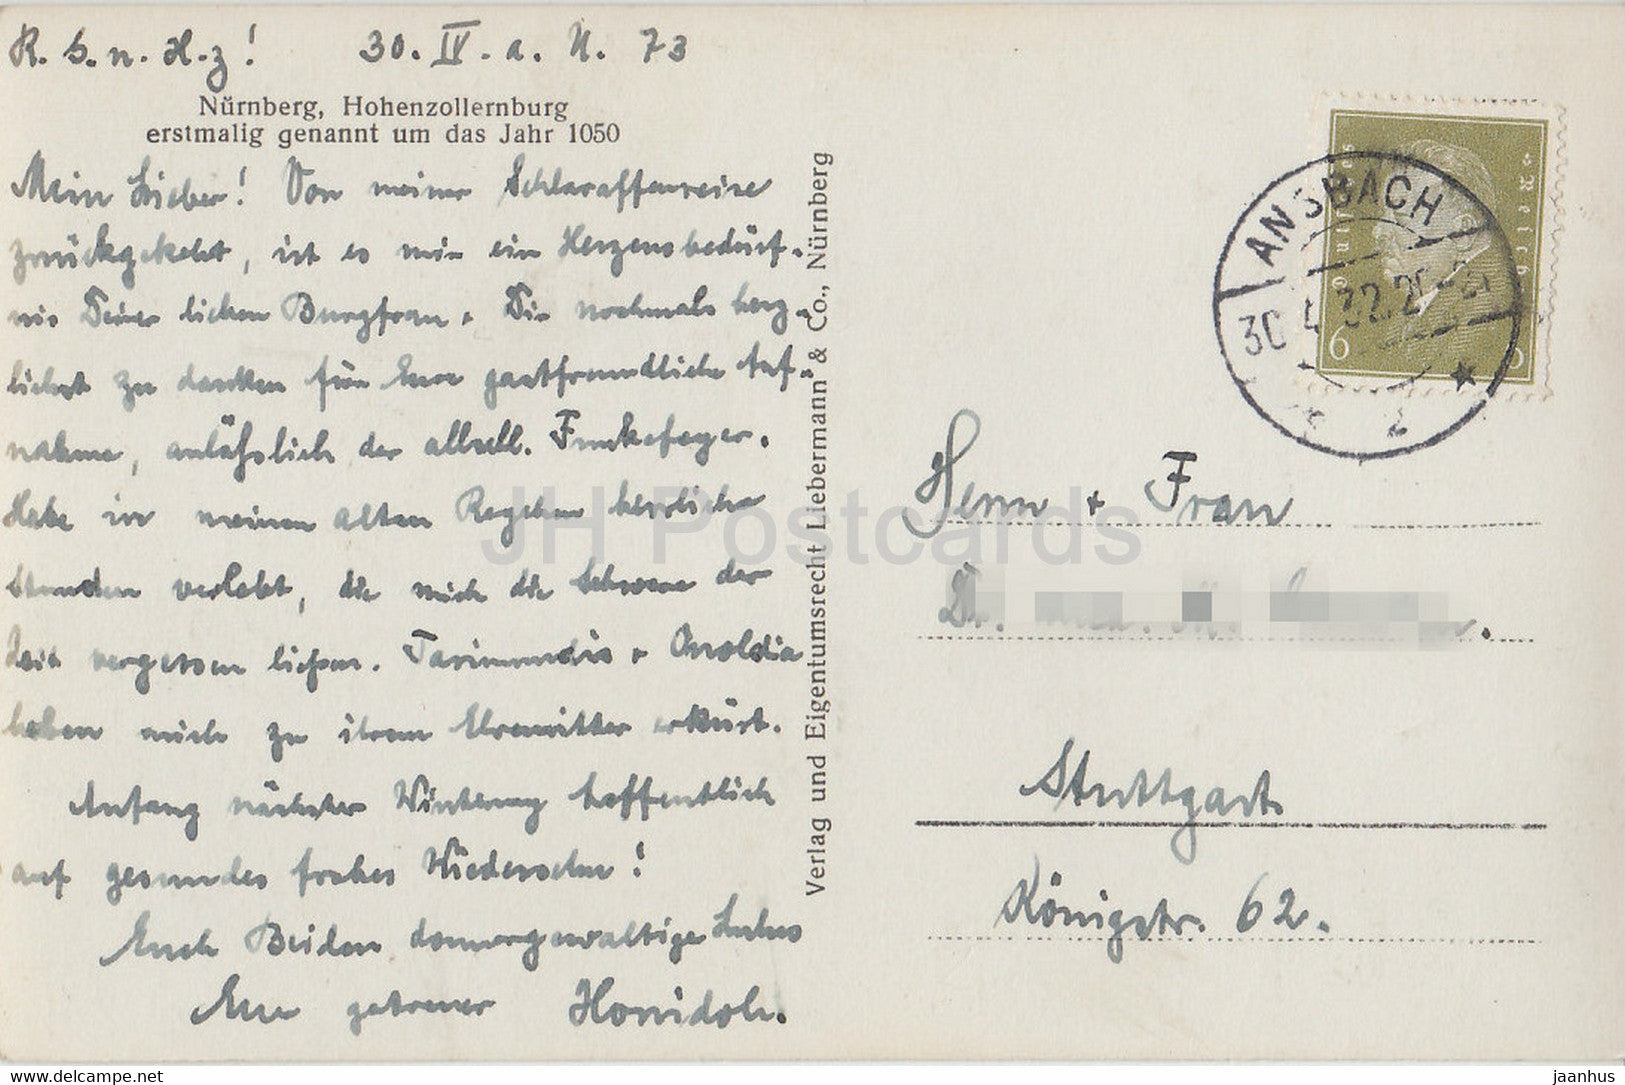 R. G. n. H-z! 30. IV. a. U. 73
Nürnberg, Hohenzollernburg
erstmalig genannt um das Jahr 1050
Mein Lieber! Von meiner Schlaraffenreise
zurückgekehrt, ist es mir ein Herzensbedürf-
nis Deiner lieben Burgfrau + Dir nochmals herz-
lichst zu danken für Eure gastfreundliche Auf-
nahme, anläßlich der allsell. Funkefeyer.
Habe in meinen alten Reychen herrliche
Stunden verlebt, die mich die Schwere der
Zeit vergessen ließen. Tarimundis + Onoldia
haben mich zu ihrem Ehrenritter erkürt.
Anfang nächster Winterung hoffentlich
auf gesundes frohes Wiedersehn!
Euch Beiden donnergewaltige Luhus
Euer getreuer
Verlag und Eigentumsrecht Liebermann & Co., Nürnberg
Deutsches Reich
6 6
ANSBACH
30.4.32.20-21
2
Herrn + Frau
Dr.
Stuttgart
Königstr. 62.
JH Postcards
delcampe.net
jaanhus